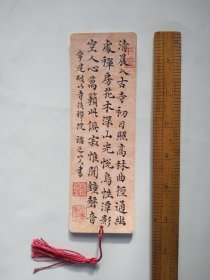 清晨入古寺初日照高林曲徑通幽
處禪房花木深山光悅鳥性潭影
空人心萬籟此俱寂惟聞鐘磬音
常建破山寺後禪院 山人書